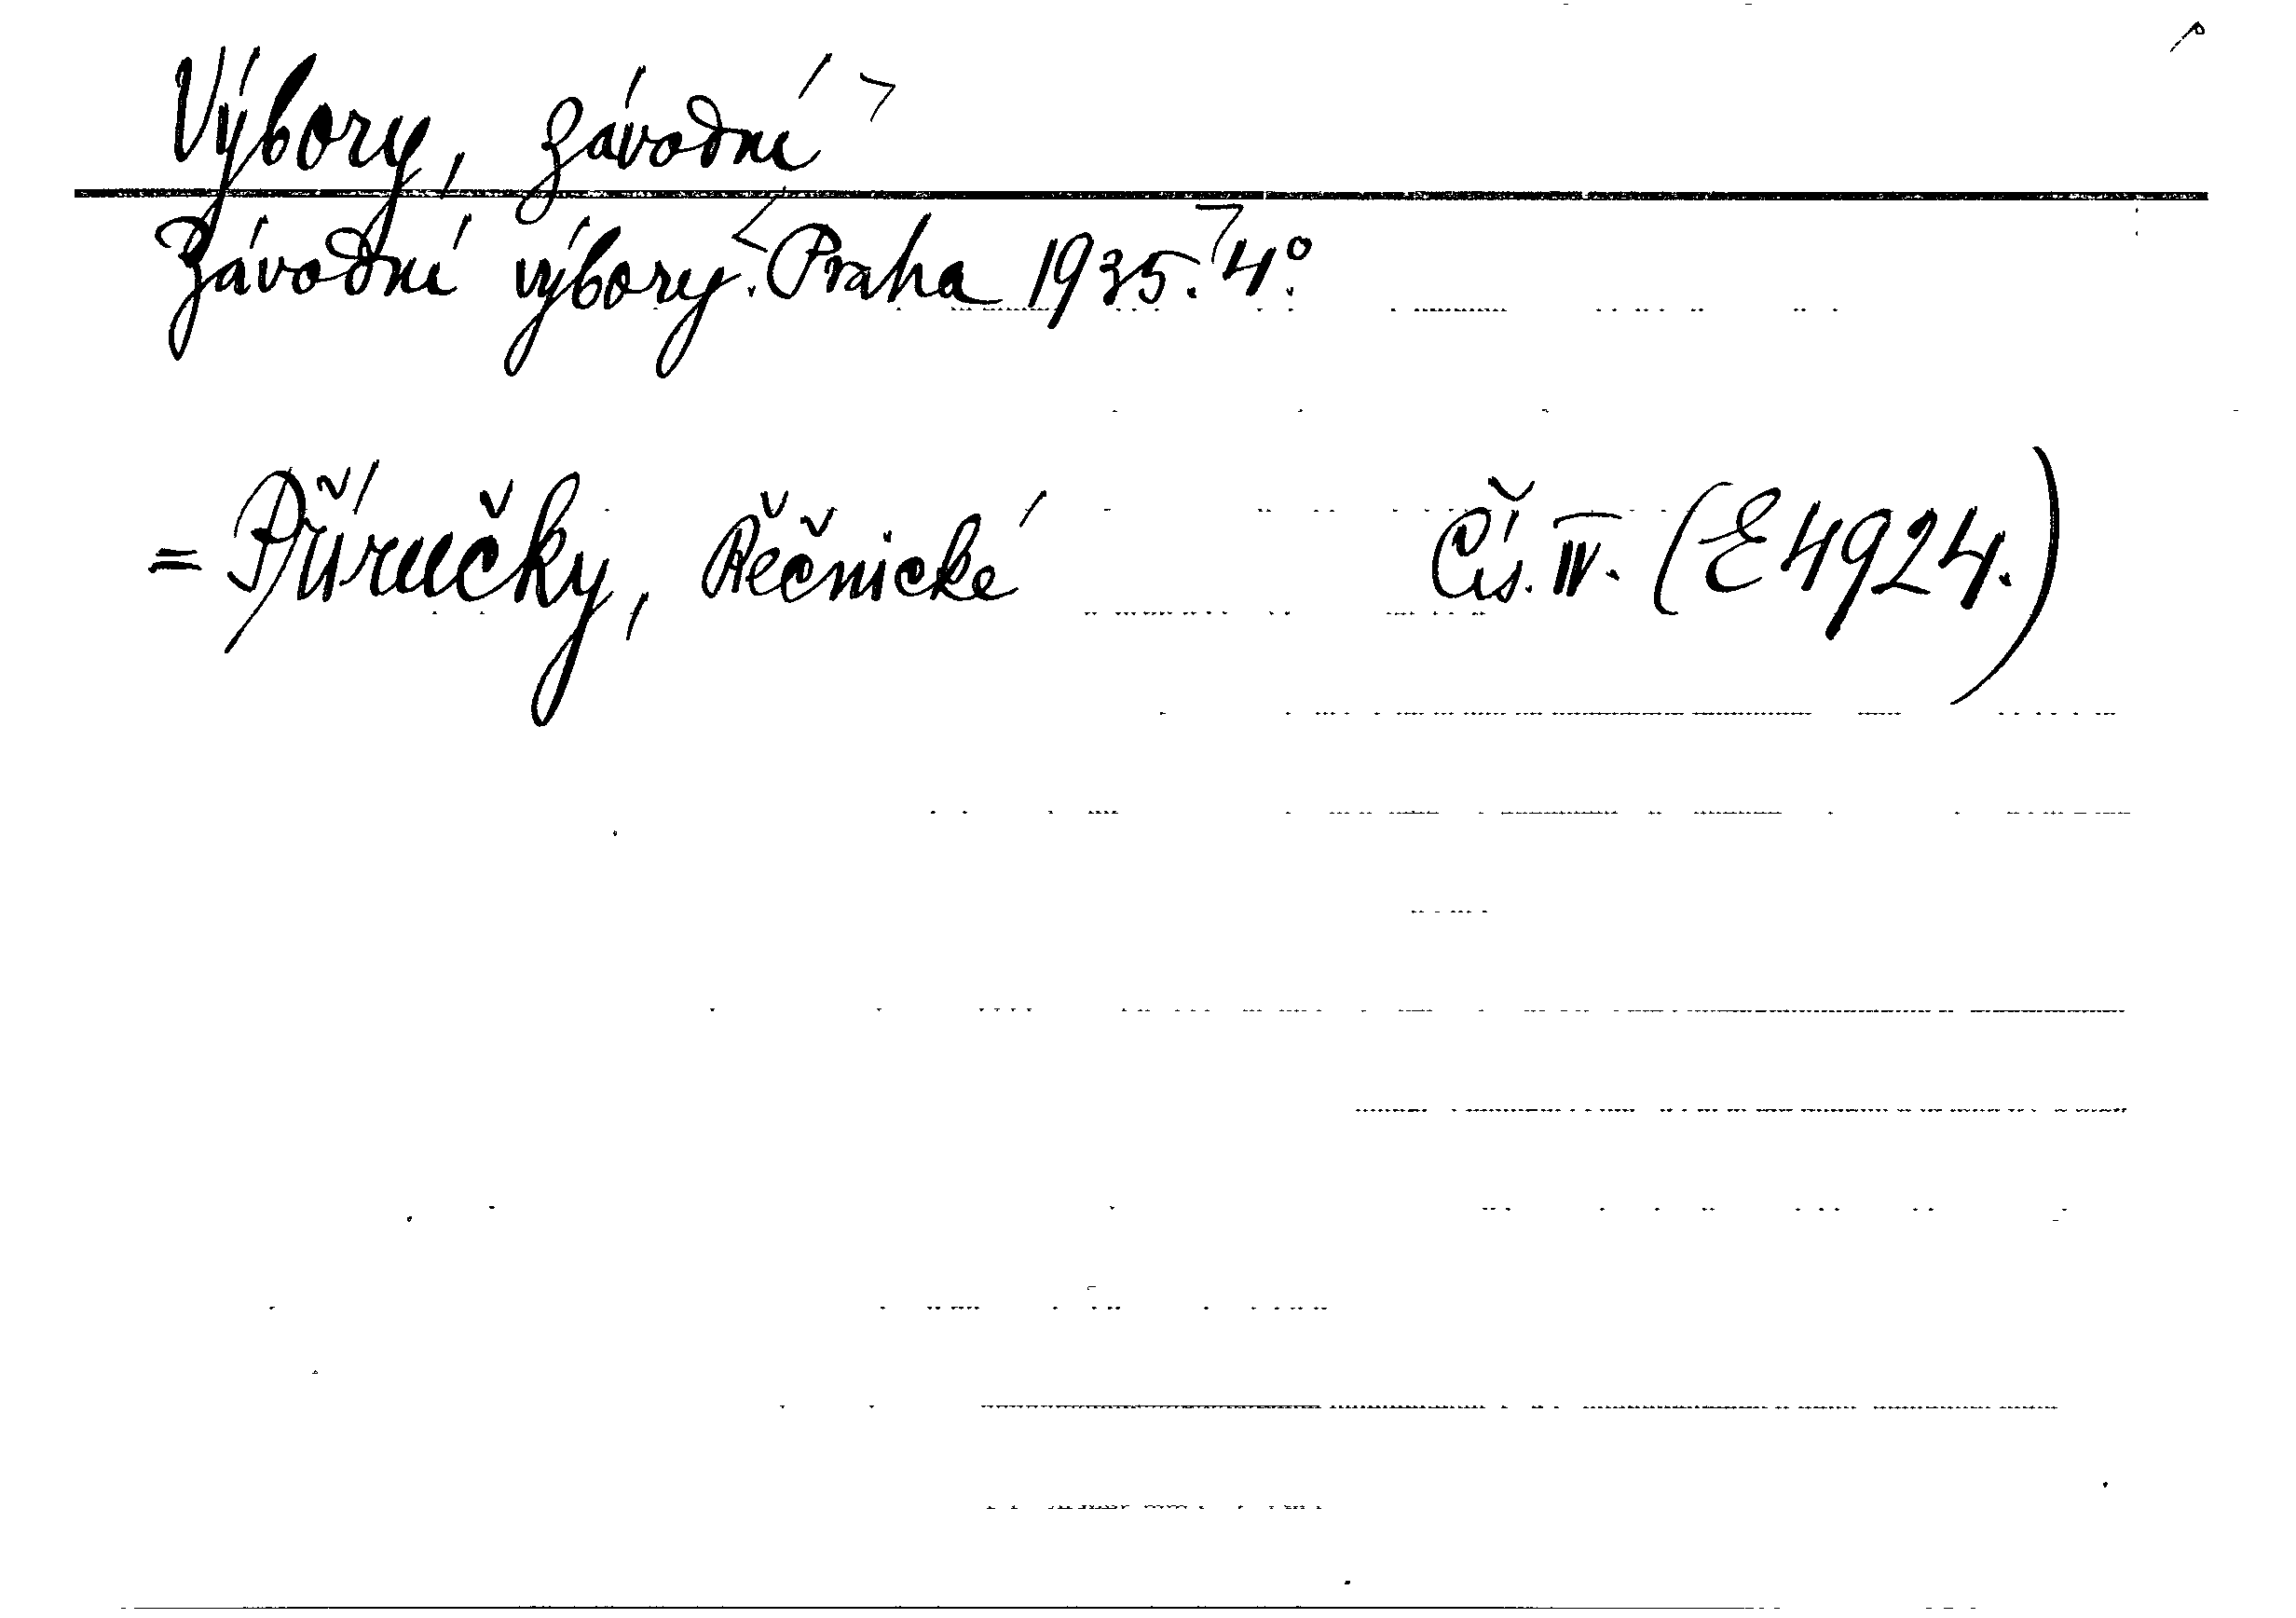 Výbory, závodní
Závodní výbory. Praha 1935. 4°.
= Příručky, Řečnické Čís. IV. (E 4924.)